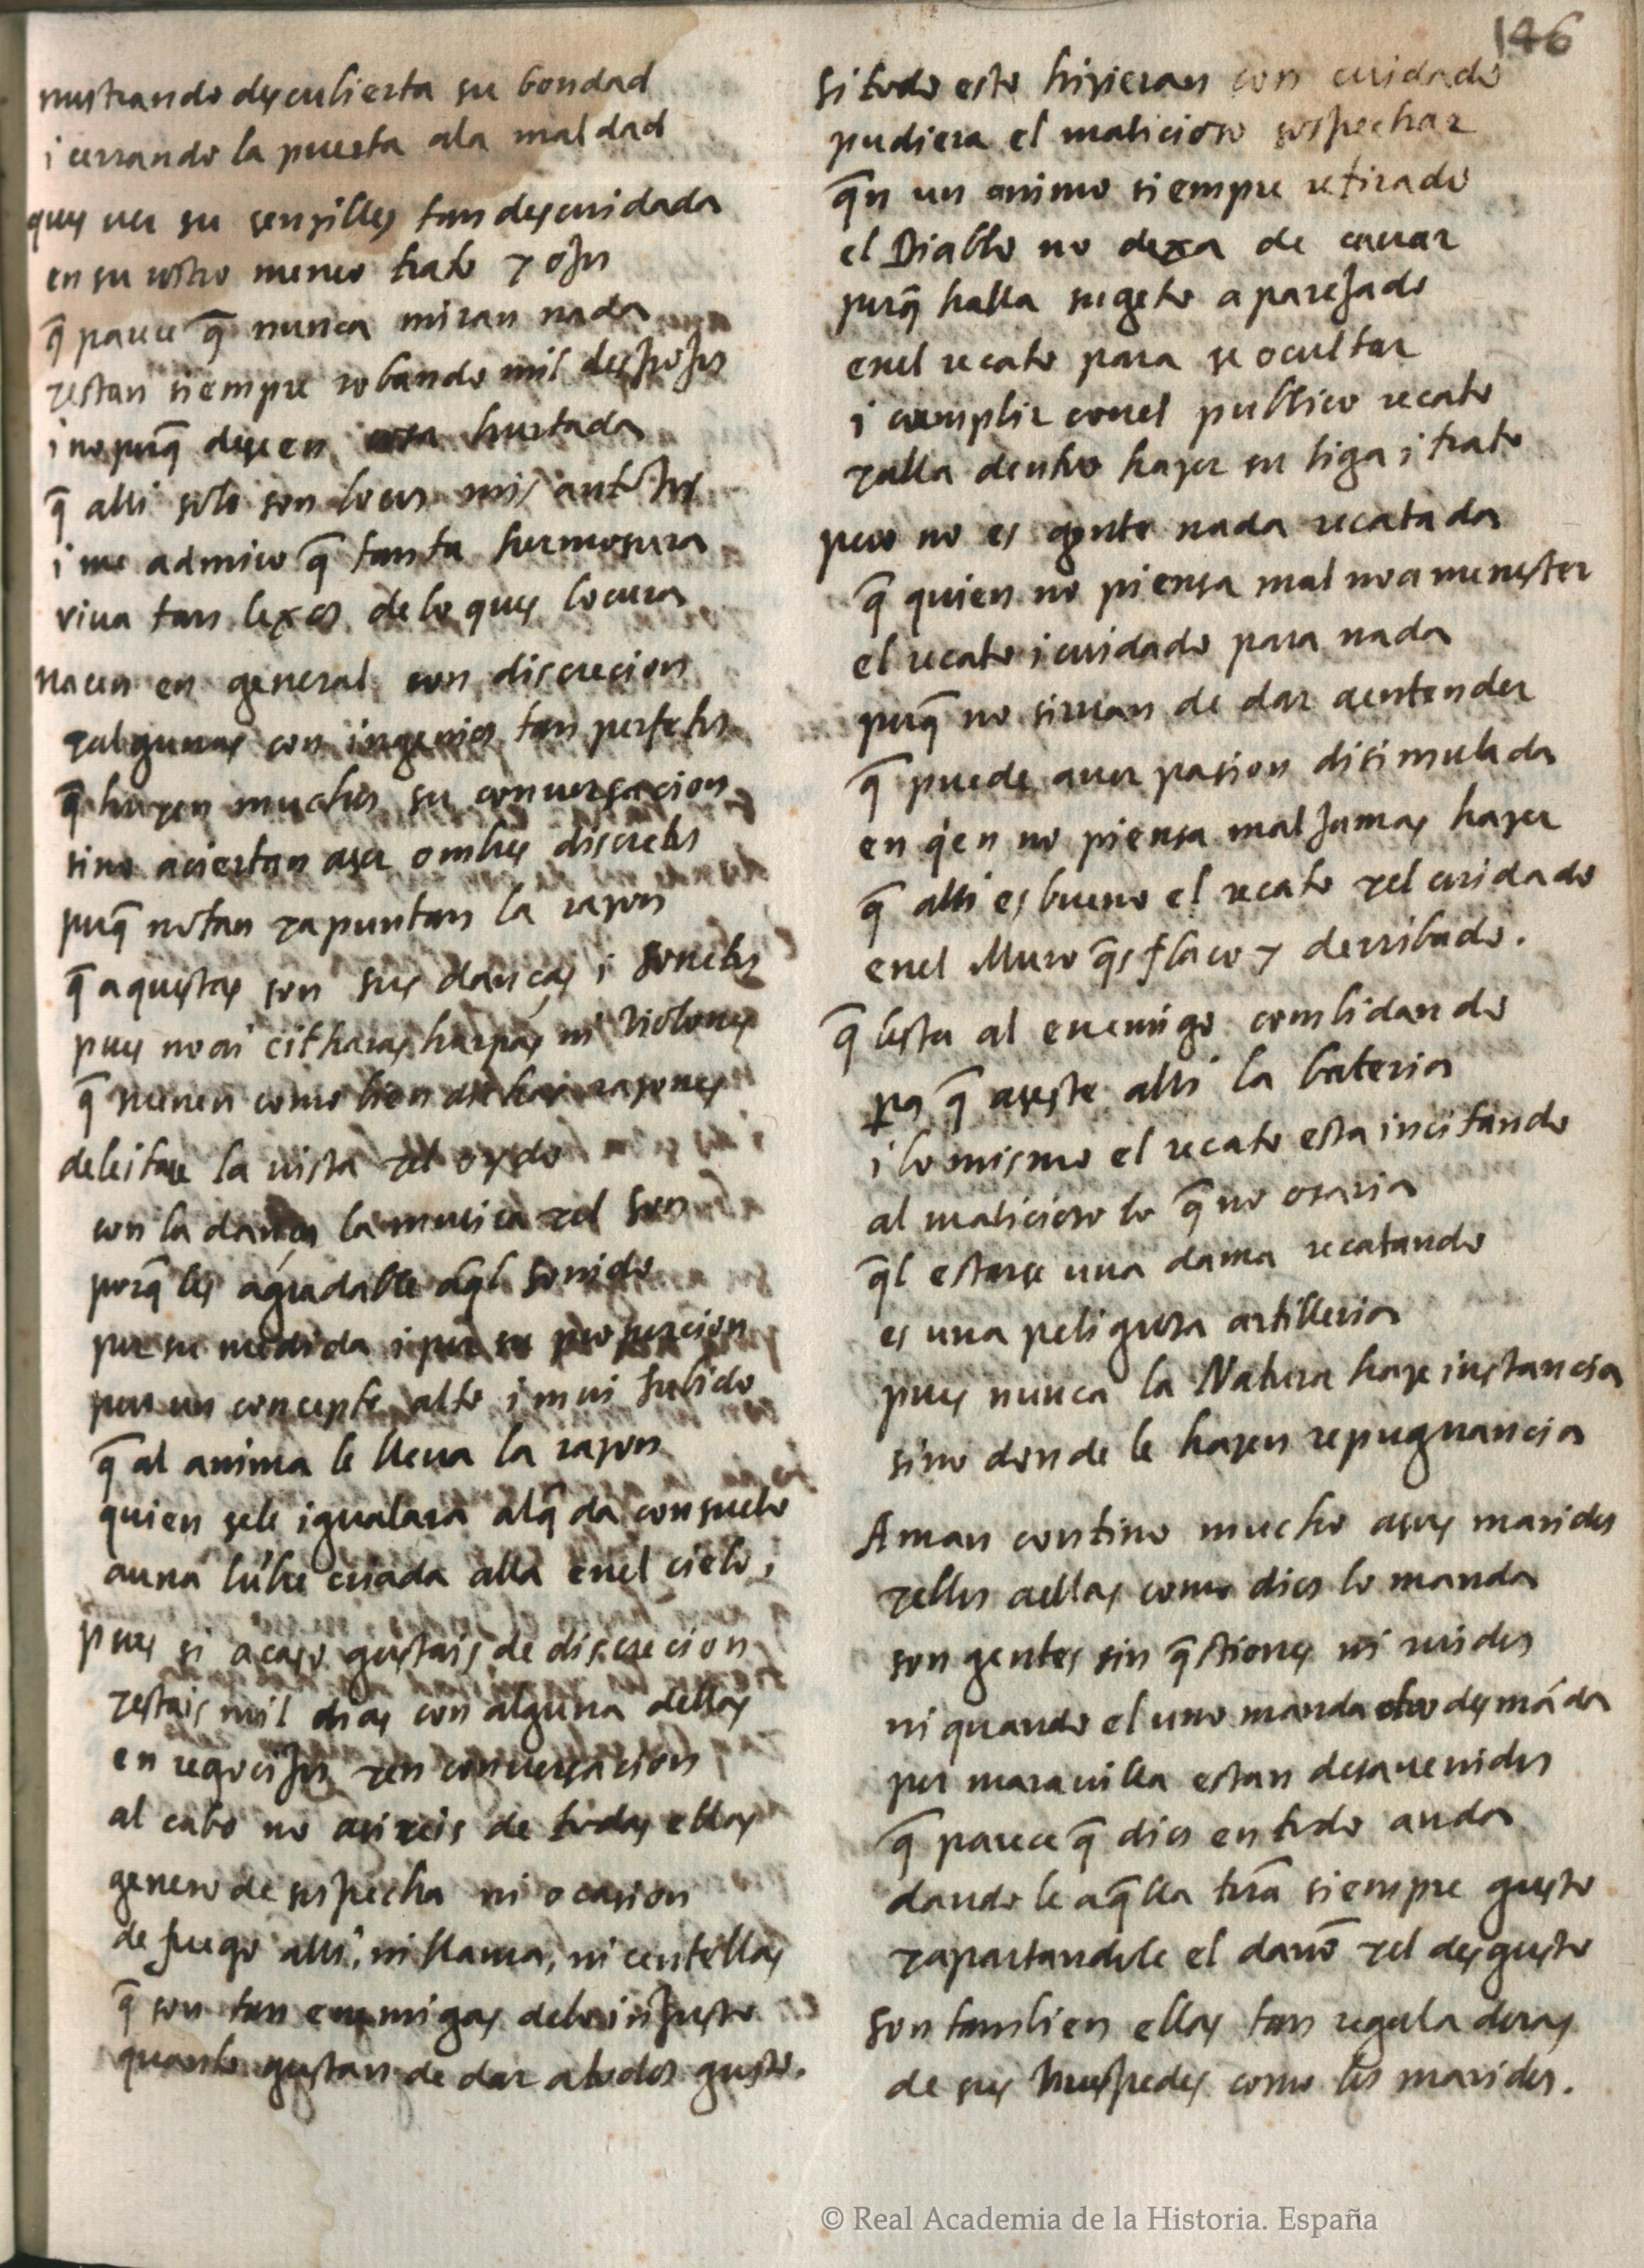 146
mustrando descubierta su bondad
i cerrando la puerta ala maldad
ques ver su senzilles tan descuidada
en su rostro meneo trato y ojos
q̃ parece q̃ nunca miran nada
y estan siempre robando mil despojos
i no porq̃ dexen cosa hurtada
q̃ alli solo son locos mis antojos
i me admiro q̃ tanta hermosura
viua tan lexos de lo ques locura
nacen en general con discrecion
y algunas con ingenios tan perfetos
q̃ hazen muchos su conuersacion
sino aciertan aser ombres discretos
porq̃ notan y apuntan la razon
q̃ aquestas son sus danças i sonetos
pues no ai citharas harpas ni violones
q̃ suenen como bien dichas razones
deleitase la uista y el oydo
con la dança la musica y el son
porq̃ les agradable aq̃l sonido
por su medida i por su proporcion
por un concepto alto i mui subido
q̃ al anima le lleua la razon
quien sele igualara alq̃ da consuelo
auna lũbre criada alla enel cielo,
pues si acaso gustais de discrecion
y estais mil dias con alguna dellas
en regocijos y en conuersacion
al cabo no asireis de todas ellas
genero de sospecha ni ocasion
de fuego alli, ni llama, ni centellas
q̃ son tan enemigas delo injusto
quanto gustan de dar atodos gusto.
si todo esto hizieran con cuidado
pudiera el malicioso sospechar
q̃n un animo siempre retirado
el Diablo no dexa de cauar
porq̃ halla sugeto aparejado
enel recato para se ocultar
i cumplir conel publico recato
y alla dentro hazer su liga i trato
pero no es gente nada recatada
q̃ quien no piensa mal noa menester
el recato i cuidado para nada
porq̃ no siruan de dar aentender
q̃ puede auer pasion disimulada
en q̃en no piensa mal jamas hazer
q̃ alli es bueno el recato y el cuidado
enel Muro q̃s flaco y derribado.
q̃ lesta al enemigo combidando
pa q̃ aseste alli la bateria
i lo mismo el recato esta incitando
al malicioso lo q̃ no osaria
q̃l estarse una dama recatando
es una peligrosa artilleria
pues nunca la Natura haze instancia
sino donde le hazen repugnancia
Aman contino mucho asus maridos
y ellos aellas como dios lo manda
son gentes sin q̃stiones ni ruidos
ni quando el uno manda otro desmãda
por marauilla estan desauenidos
q̃ parece q̃ dios en todo anda
dando le aq̃lla trã siempre gusto
y apartandole el daño y el desgusto
son tambien ellas tan regaladoras
de sus huespedes como los maridos.
© Real Academia de la Historia. España